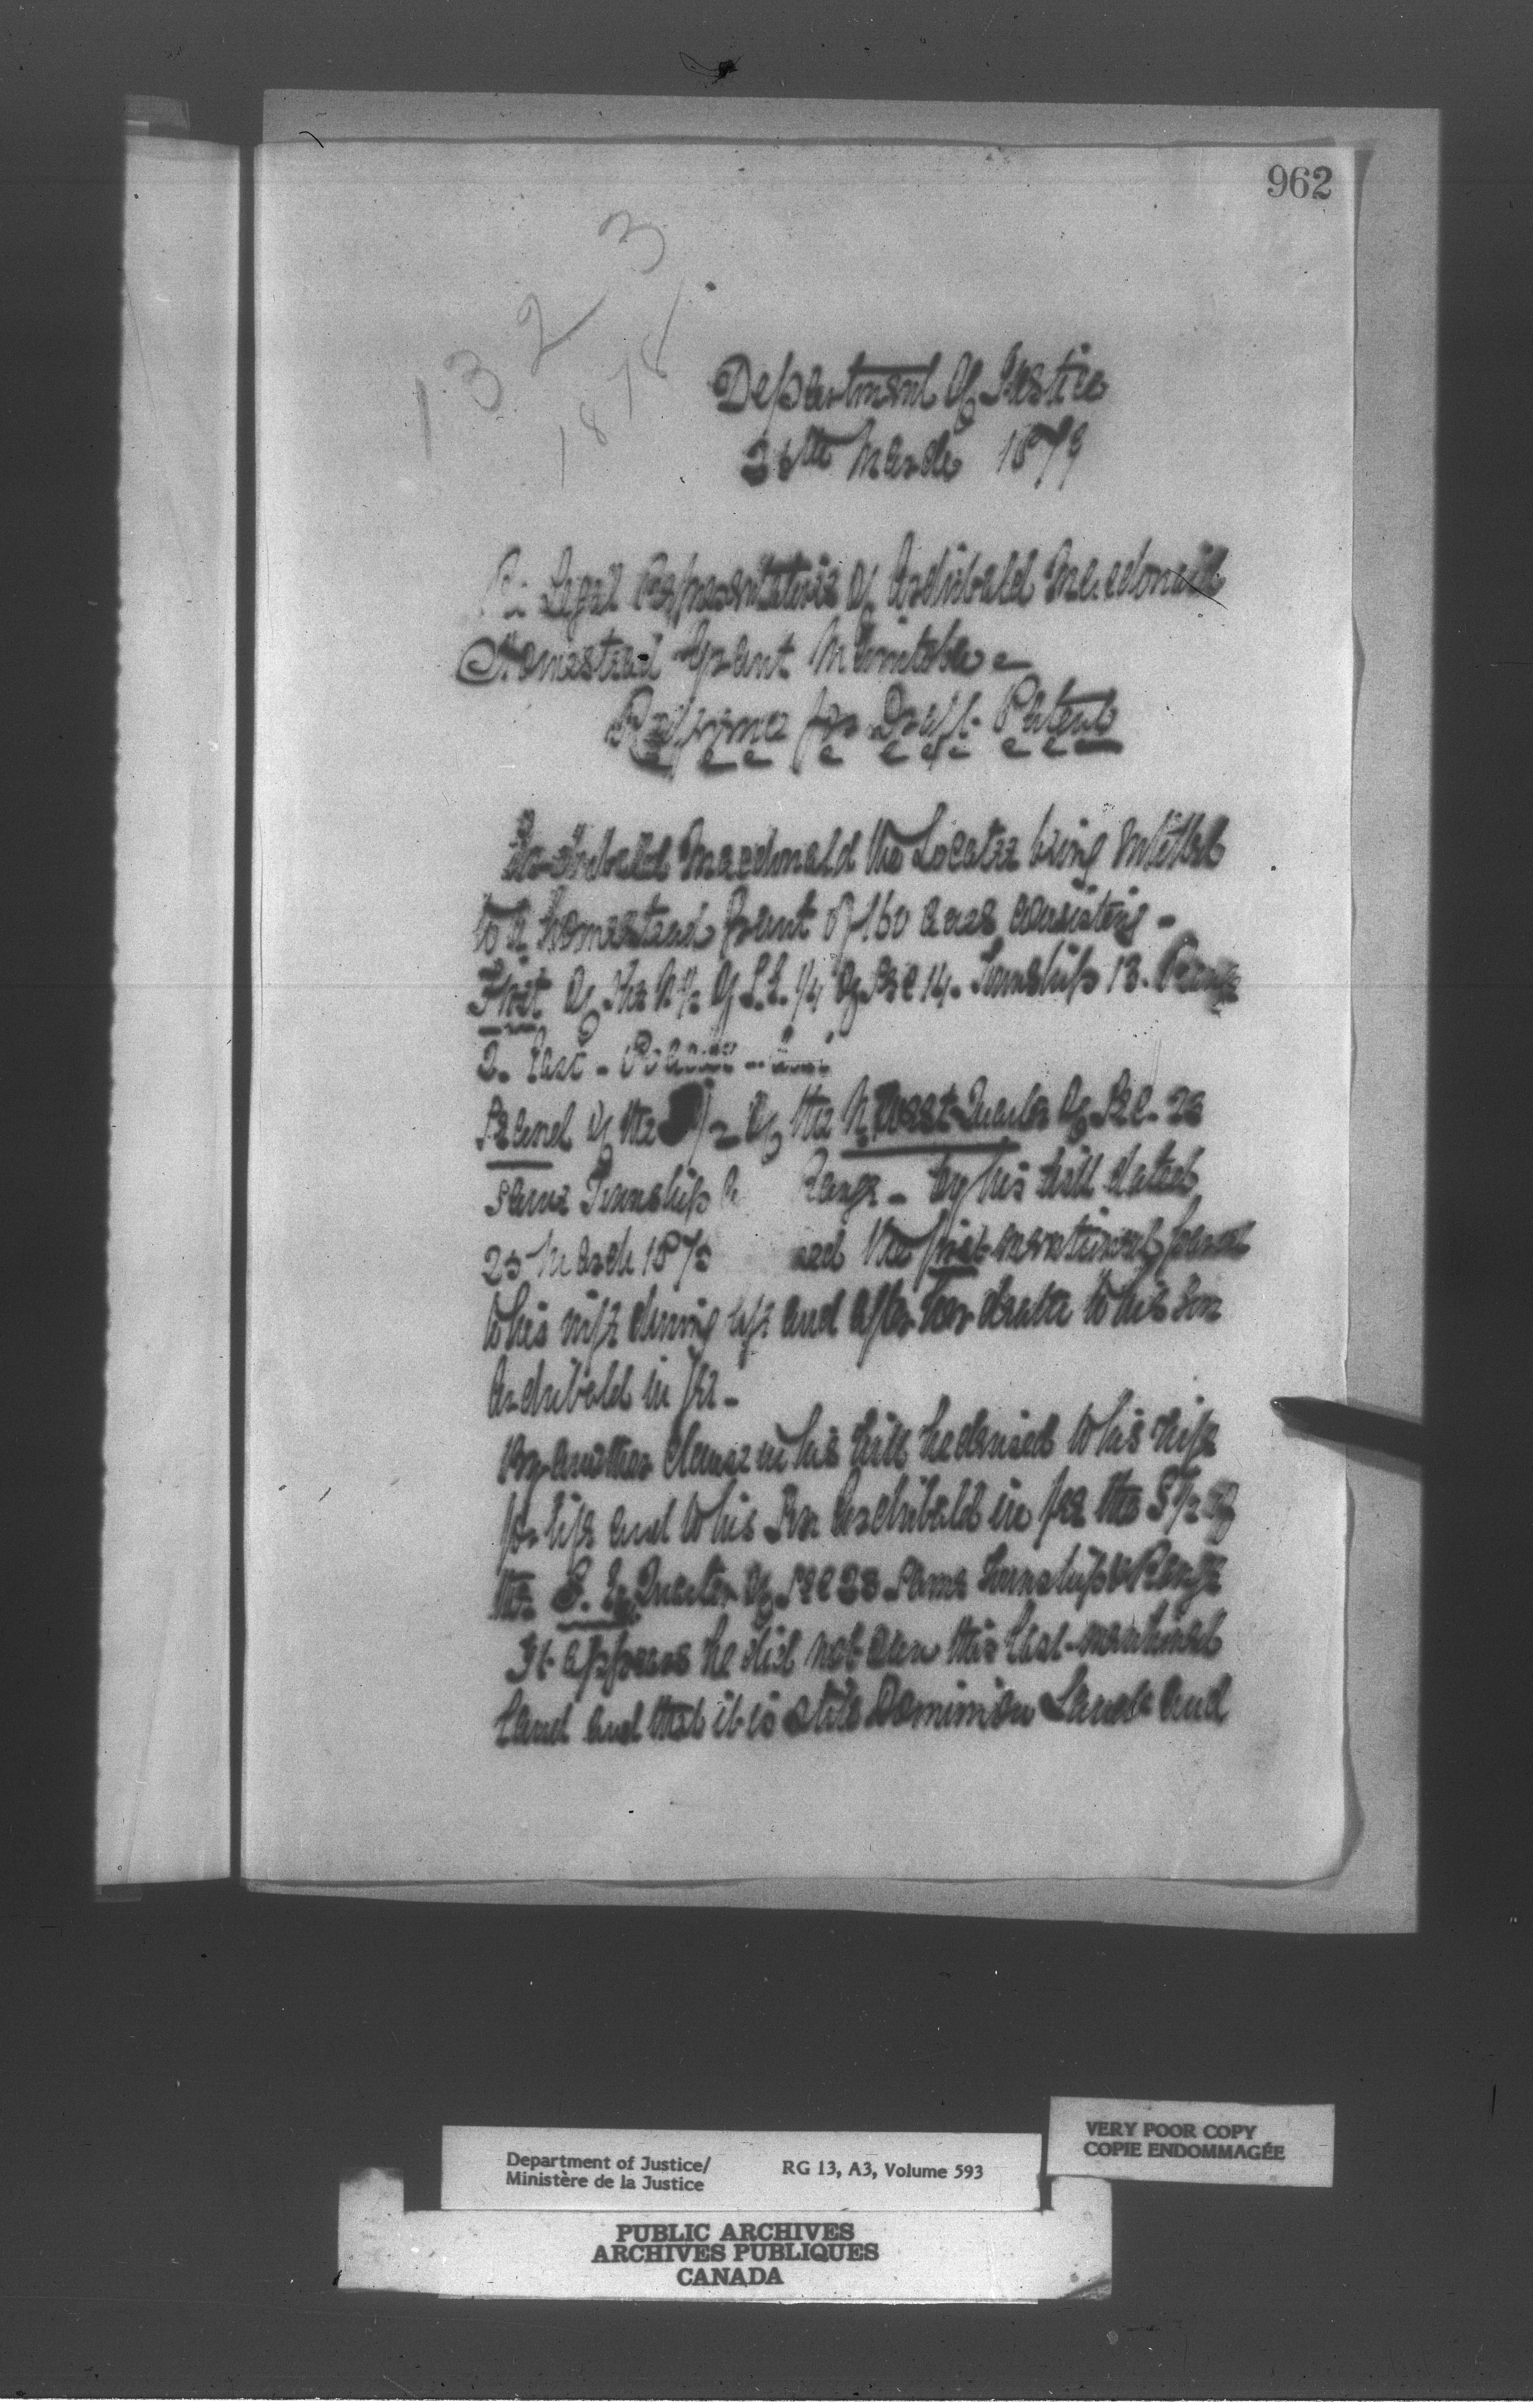 962
1323
1878
Department of Justice
26th March 1879
Re Legal Representatives of Archibald Macdonald
Homestead Grant Manitoba
Reference for Draft Patent
Archibald Macdonald the Locatee being entitled
to a homestead grant of 160 acres consisting -
First of the N ½ of S.E. ¼ of Sec 14. Township 13. Range
2. East -
Second of the ½ of the N. West Quarter of Sec. 23
same Township & Range - by his will dated
25 March 1875 the first mentioned parcel
to his wife during life and after her death to his son
Archibald in fee -
By another clause in his will he devised to his wife
for life and to his Son Archibald in fee the S ½ of
the S. E. Quarter of Sec 23 same Township & Range
It appears he did not own this last mentioned
land and that it is still Dominion Lands and
VERY POOR COPY
COPIE ENDOMMAGÉE
Department of Justice/
Ministère de la Justice
RG 13, A3, Volume 593
PUBLIC ARCHIVES
ARCHIVES PUBLIQUES
CANADA